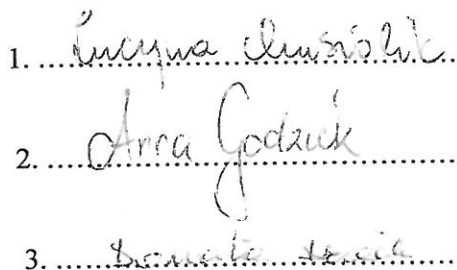 1. Lucyna Musiolik
2. Anna Godziek
3. Donata